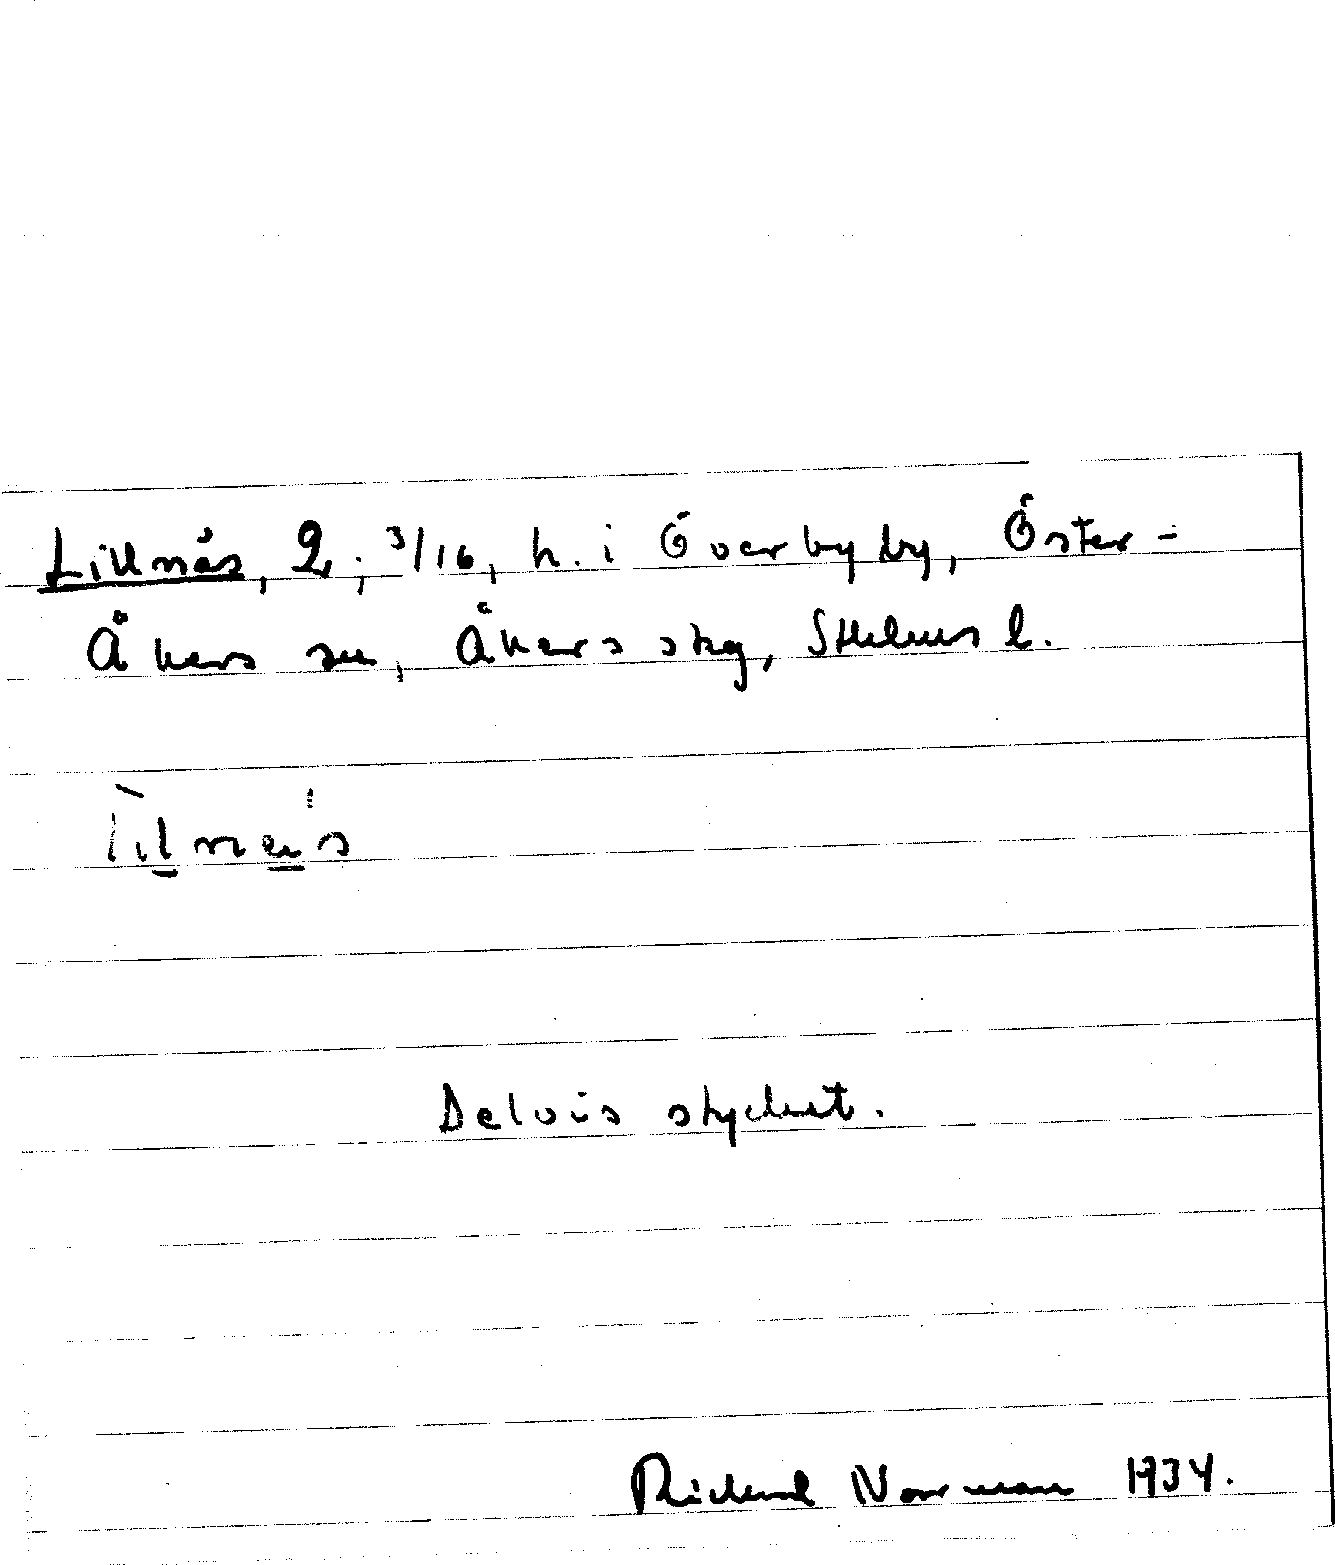 Lillnäs, 2; 3/16, h. i Överby by, Öster-
Åkers sn, Åkers skg, Sthlms l.
Delvis styckat.
Rickard Norrman 1934.